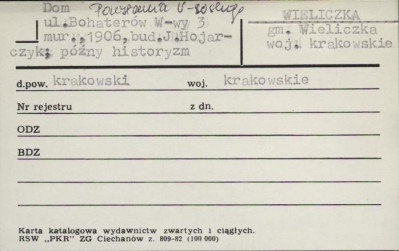 Dom Powstania W-skiego
ul.Bohaterów W-wy 3
mur.,1906,bud.J.Hojar-
czyk; późny historyzm
WIELICZKA
gm. Wieliczka
woj. krakowskie
d.pow. krakowski woj. krakowskie
Nr rejestru z dn.
ODZ
BDZ
Karta katalogowa wydawnictw zwartych i ciągłych.
RSW „PKR” ZG Ciechanów z. 809-82 (100 000)